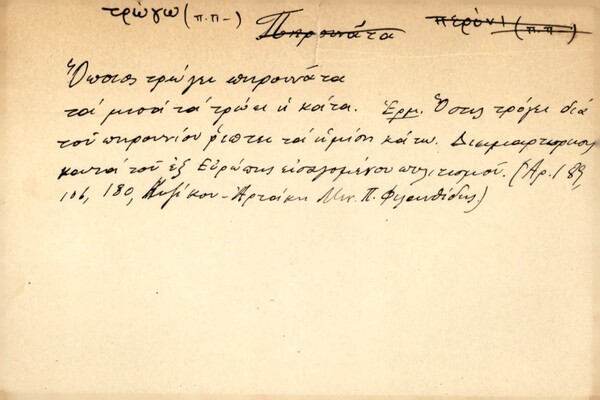 τρώγω (π.π-) Πηρουνάτα περόνι (π.π-)
Ὅποιος τρώγει πηρουνάτα
τά μισά τά τρώει ἡ κάτα. Ἑρμ. Ὅστις τρώγει διά
τοῦ πηρουνίου ρίπτει τά ἡμίση κάτω. Διαμαρτύρησις
κατά τοῦ ἐξ Εὐρώπης εἰσαγομένου πολιτισμοῦ. (Ἀρ. 189,
106, 180, Κυζίκου - Ἀρτάκη Μιν. Π. Φιλανθίδης)